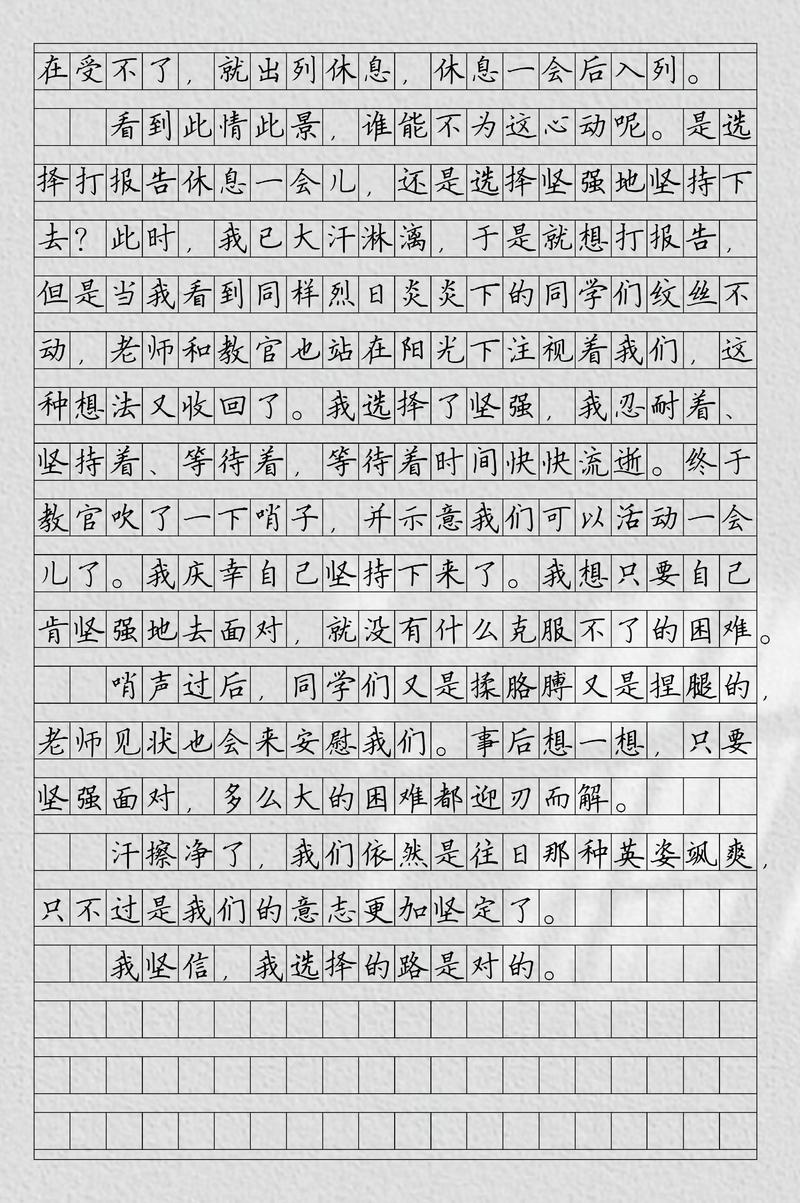 在受不了，就出列休息，休息一会后入列。
看到此情此景，谁能不为这心动呢。是选
择打报告休息一会儿，还是选择坚强地坚持下
去？此时，我已大汗淋漓，于是就想打报告，
但是当我看到同样烈日炎炎下的同学们纹丝不
动，老师和教官也站在阳光下注视着我们，这
种想法又收回了。我选择了坚强，我忍耐着、
坚持着、等待着，等待着时间快快流逝。终于
教官吹了一下哨子，并示意我们可以活动一会
儿了。我庆幸自己坚持下来了。我想只要自己
肯坚强地去面对，就没有什么克服不了的困难。
哨声过后，同学们又是揉胳膊又是捏腿的，
老师见状也会来安慰我们。事后想一想，只要
坚强面对，多么大的困难都迎刃而解。
汗擦净了，我们依然是往日那种英姿飒爽，
只不过是我们的意志更加坚定了。
我坚信，我选择的路是对的。